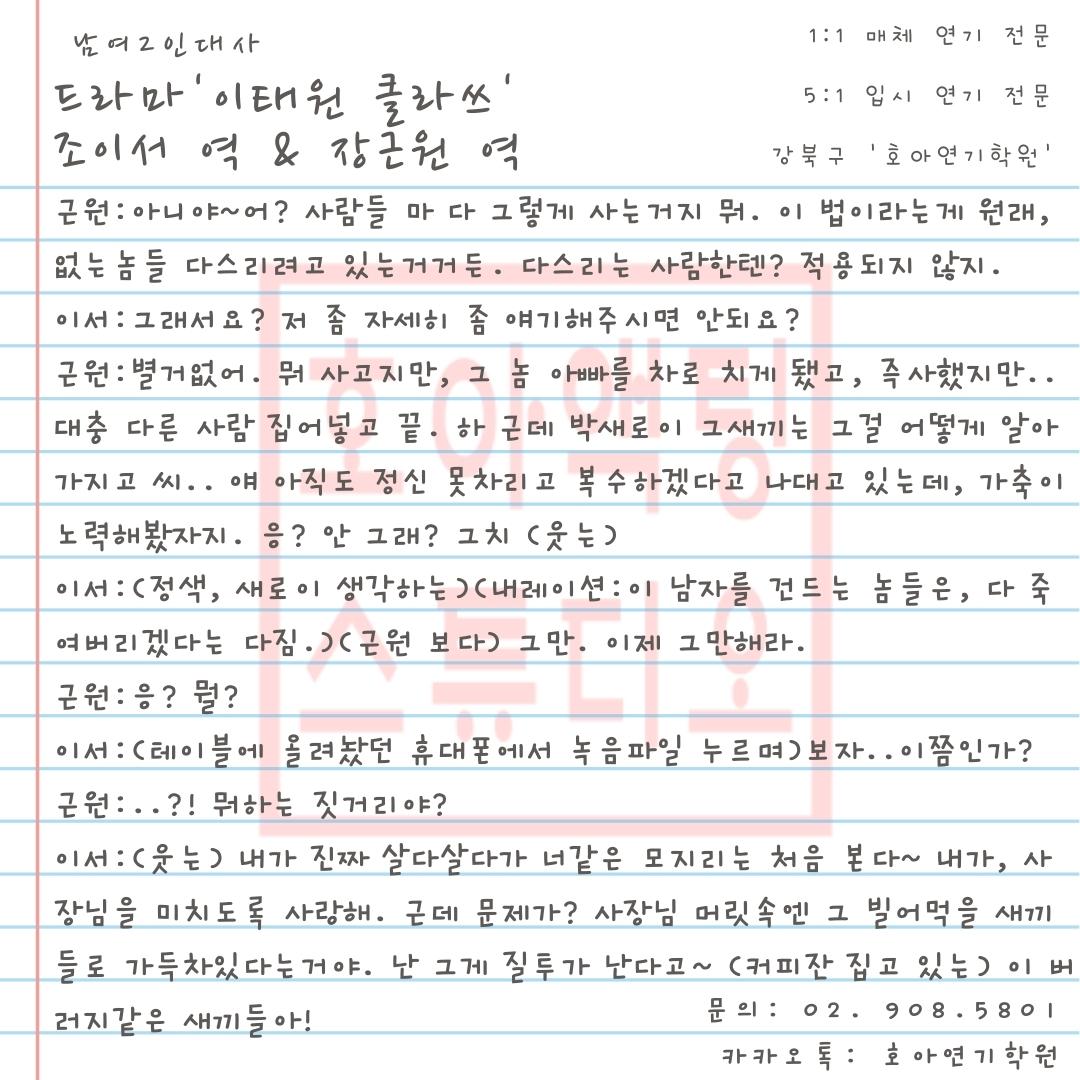 남여2인대사
드라마'이태원 클라쓰'
조이서 역 & 장근원 역
1:1 매체 연기 전문
5:1 입시 연기 전문
강북구 '호아연기학원'
근원:아니야~어? 사람들 마 다 그렇게 사는거지 뭐. 이 법이라는게 원래,
없는놈들 다스리려고 있는거거든. 다스리는 사람한텐? 적용되지 않지.
이서:그래서요? 저 좀 자세히 좀 얘기해주시면 안되요?
근원:별거없어. 뭐 사고지만, 그 놈 아빠를 차로 치게 됐고, 즉사했지만..
대충 다른 사람 집어넣고 끝. 하 근데 박새로이 그새끼는 그걸 어떻게 알아
가지고 씨.. 얘 아직도 정신 못차리고 복수하겠다고 나대고 있는데, 가축이
노력해봤자지. 응? 안 그래? 그치 (웃는)
이서:(정색, 새로이 생각하는)(내레이션:이 남자를 건드는 놈들은, 다 죽
여버리겠다는 다짐.)(근원 보다) 그만. 이제 그만해라.
근원:응? 뭘?
이서:(테이블에 올려놨던 휴대폰에서 녹음파일 누르며)보자..이쯤인가?
근원:..?! 뭐하는 짓거리야?
이서:(웃는) 내가 진짜 살다살다가 너같은 모지리는 처음 본다~ 내가, 사
장님을 미치도록 사랑해. 근데 문제가? 사장님 머릿속엔 그 빌어먹을 새끼
들로 가득차있다는거야. 난 그게 질투가 난다고~ (커피잔 집고 있는) 이 버
러지같은 새끼들아!
문의: 02. 908.5801
카카오톡: 호아연기학원
호아액팅
스튜디오